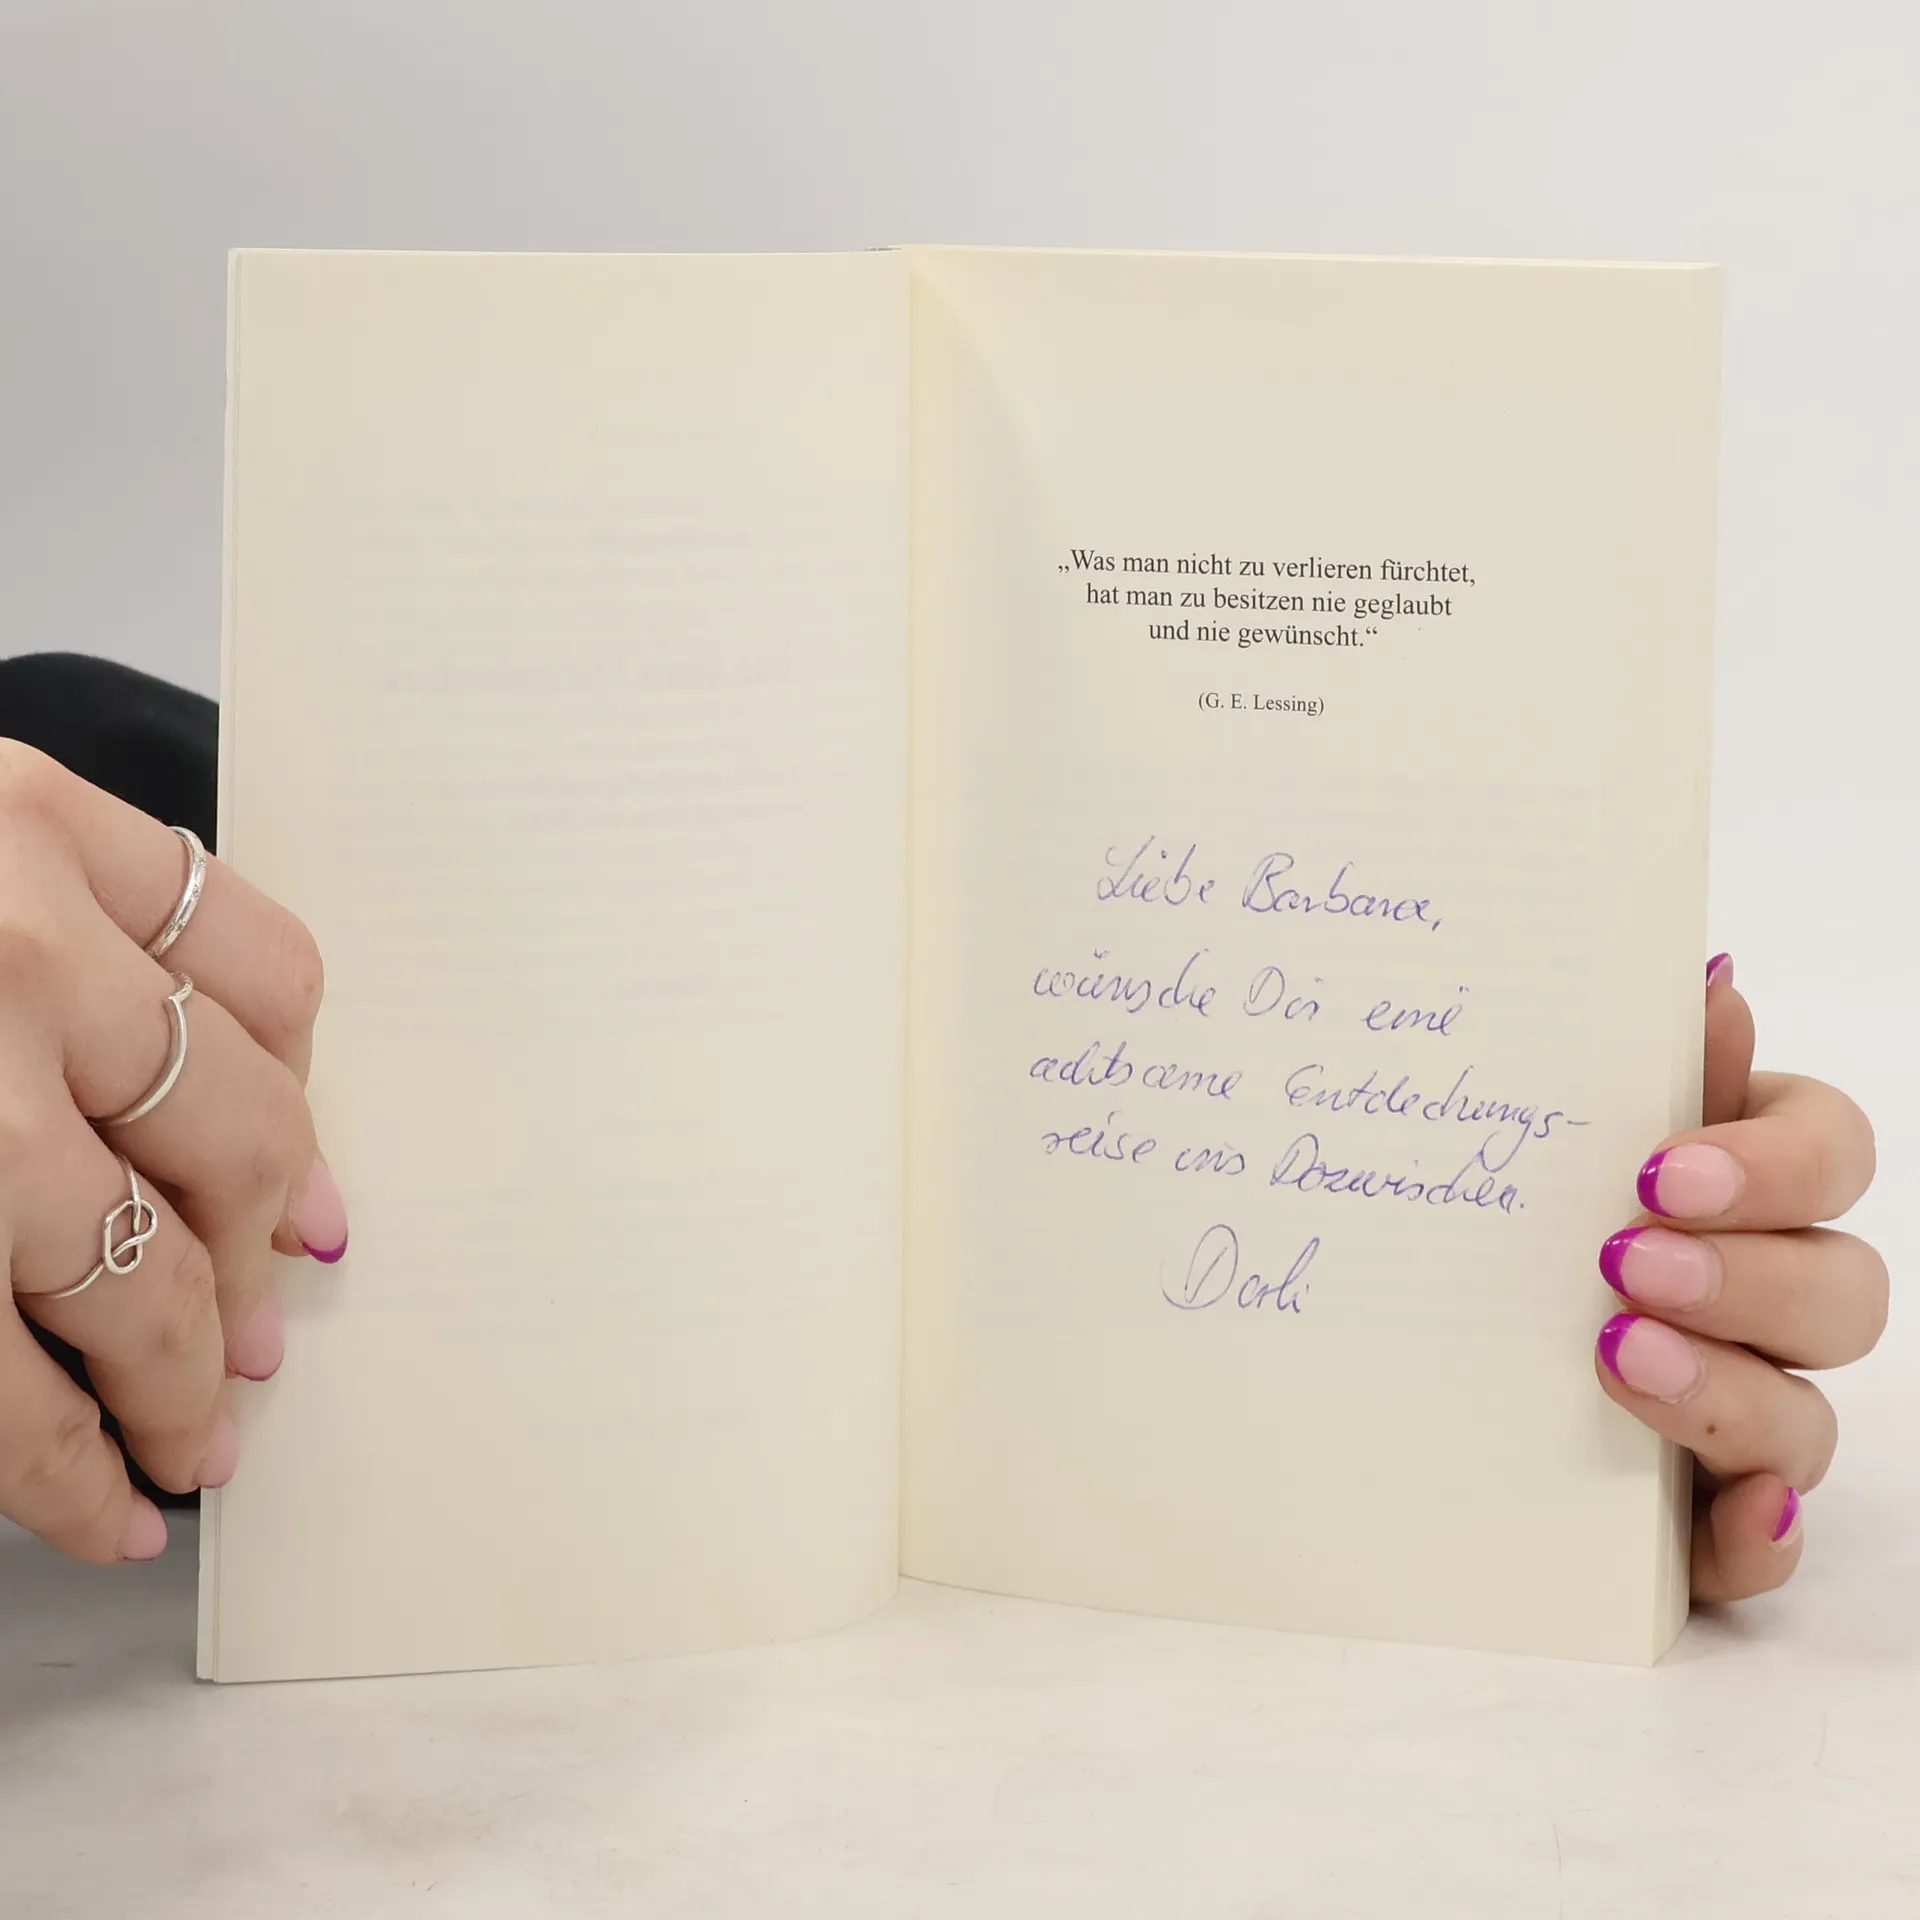 „Was man nicht zu verlieren fürchtet,
hat man zu besitzen nie geglaubt
und nie gewünscht.“
(G. E. Lessing)
Liebe Barbara,
wünsche Dir eine
achtsame Entdeckungs-
reise ins Dazwischen.
Darli